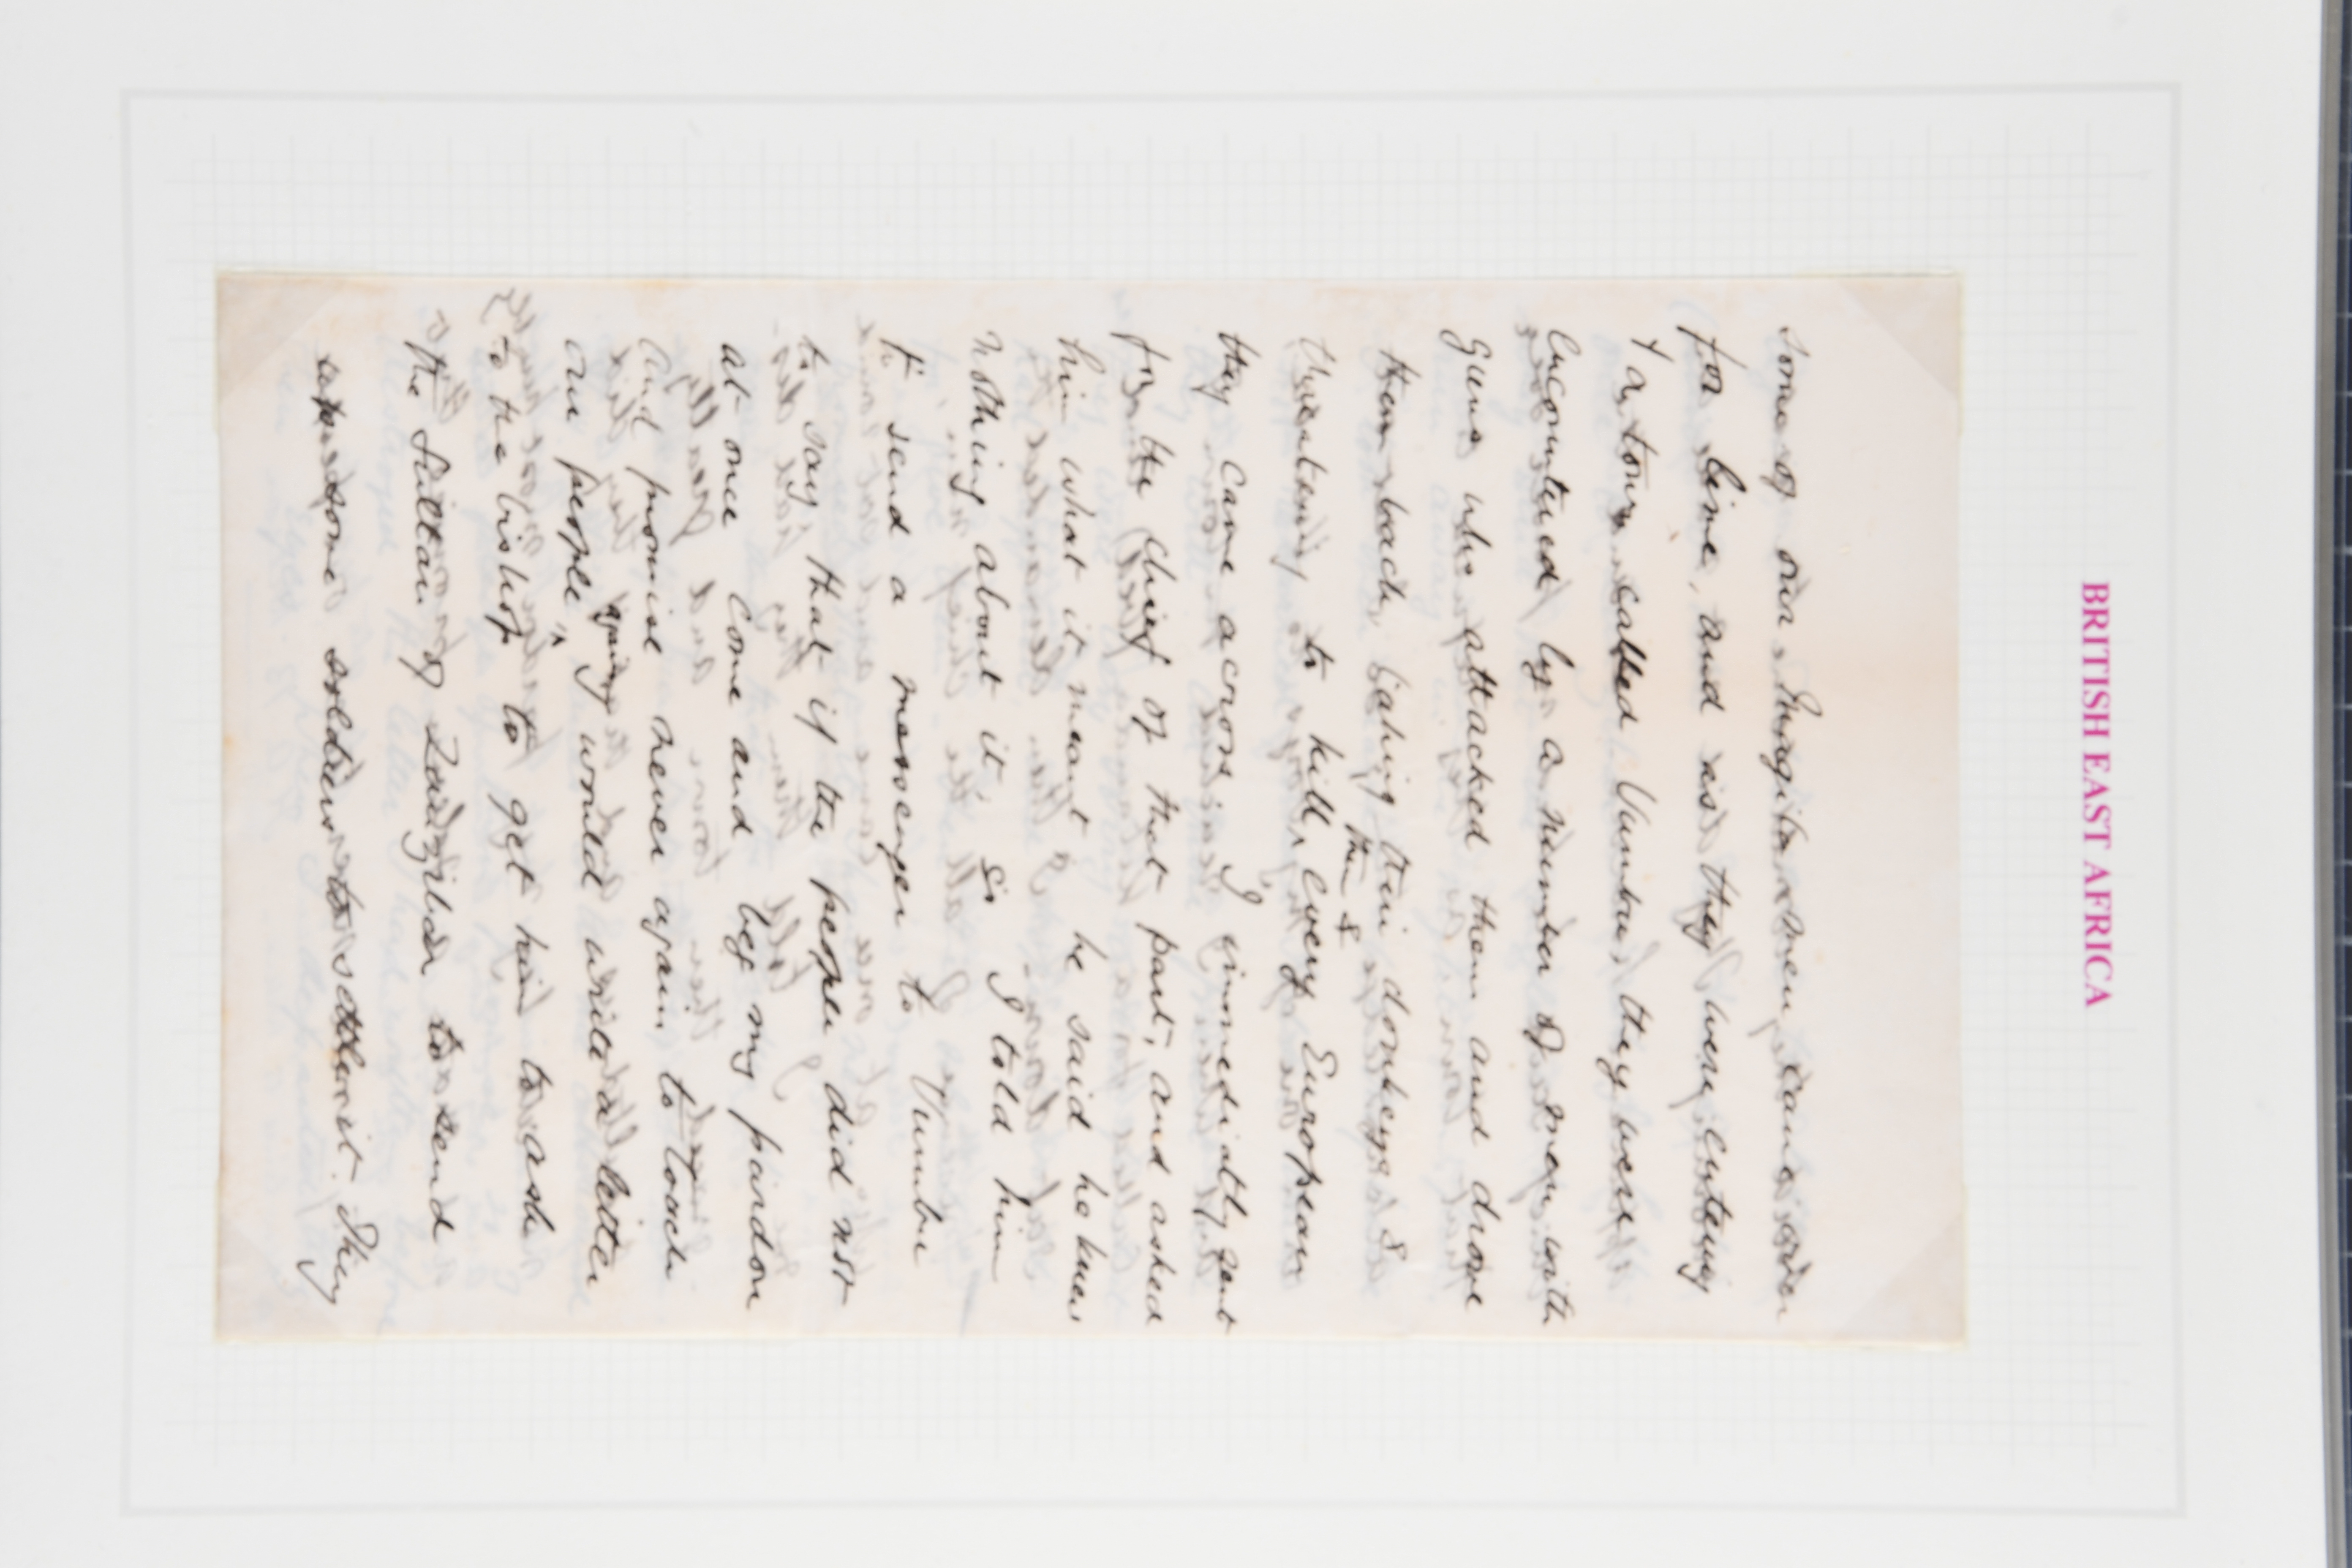 BRITISH EAST AFRICA
some of our Magila men came over
for lime, and as they were entering
a town called Vumba, they were
encountered by a number of men with
guns who attacked them and drove
them back taking their donkeys &
them &
threatening to kill every European
they came across. I immediatly sent
for the chief of that part, and asked
him what it meant he said he knew
nothing about it. So I told him
to send a messenger to Vumba
to say that if the people did not
at once come and beg my pardon
and promise never again to touch
our people, I would write a letter
to the bishop to get him to ask
the Sultan of Zanzibar to send
some soldiers to settle it. They